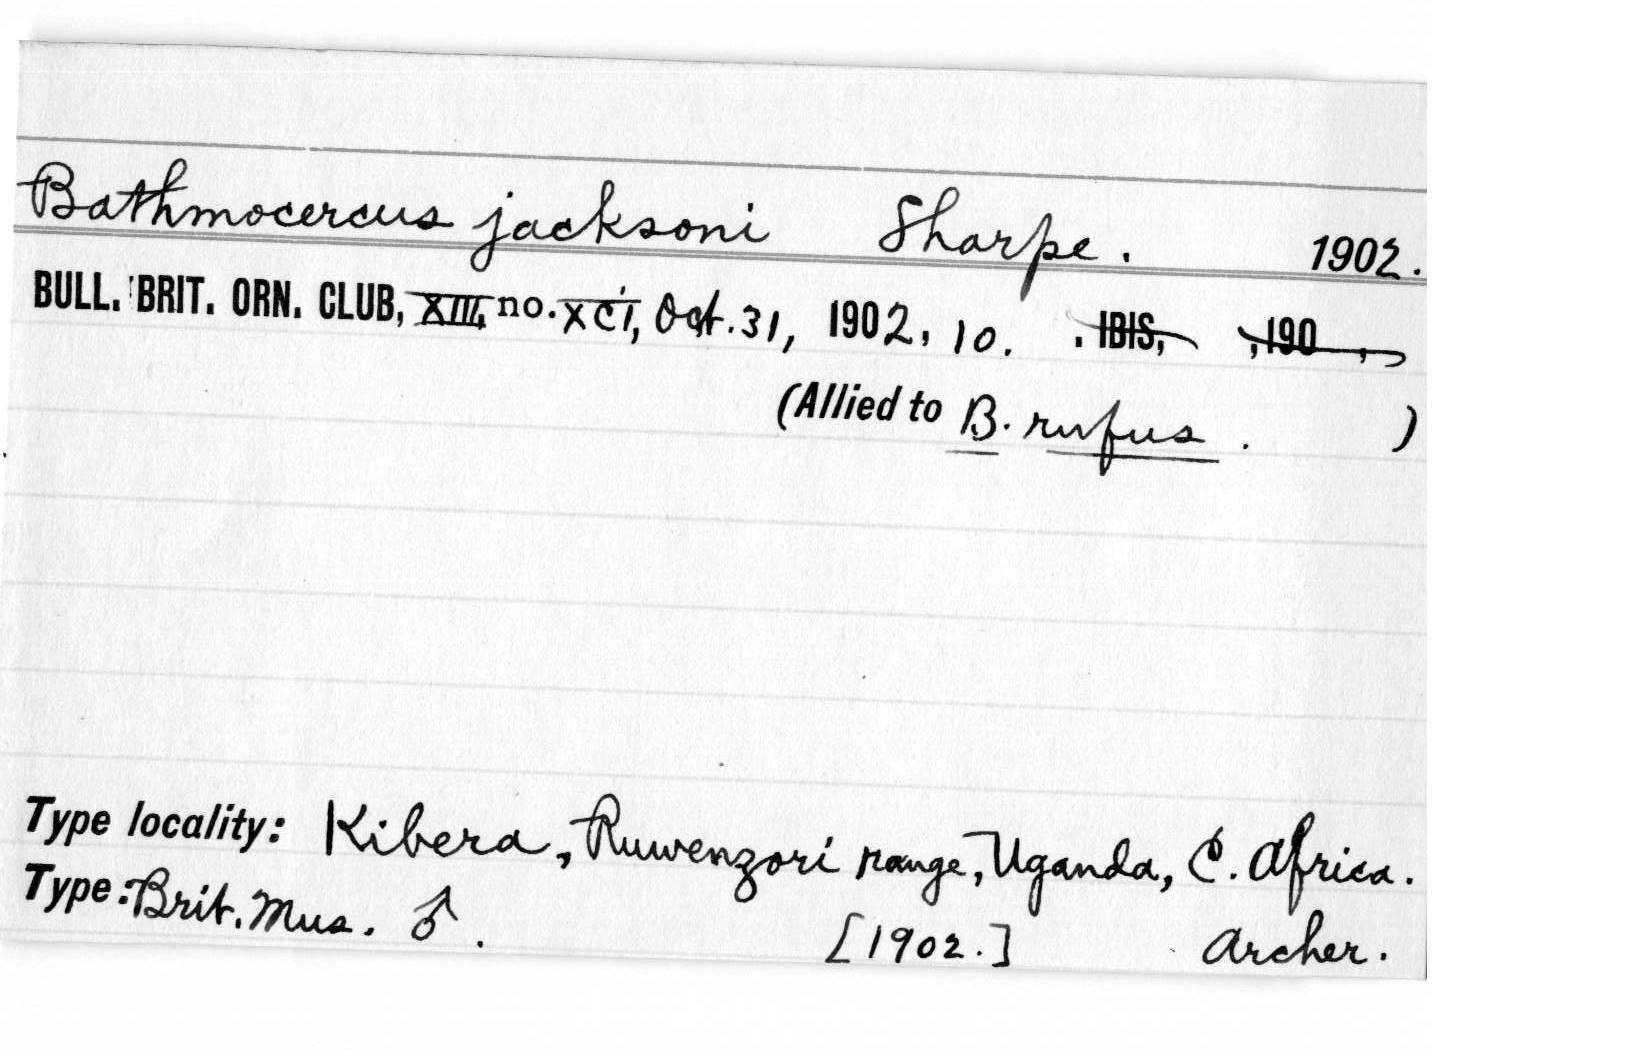 Bathmocercus jacksoni Sharpe. 1902.
BULL. BRIT. ORN. CLUB, XIII, no. XCI, Oct. 31, 1902, 10. . IBIS, , 190 ,
(Allied to B. rufus. )
Type locality: Kibera, Ruwenzori range, Uganda, C. Africa.
Type: Brit. Mus. ♂. [1902.] Archer.